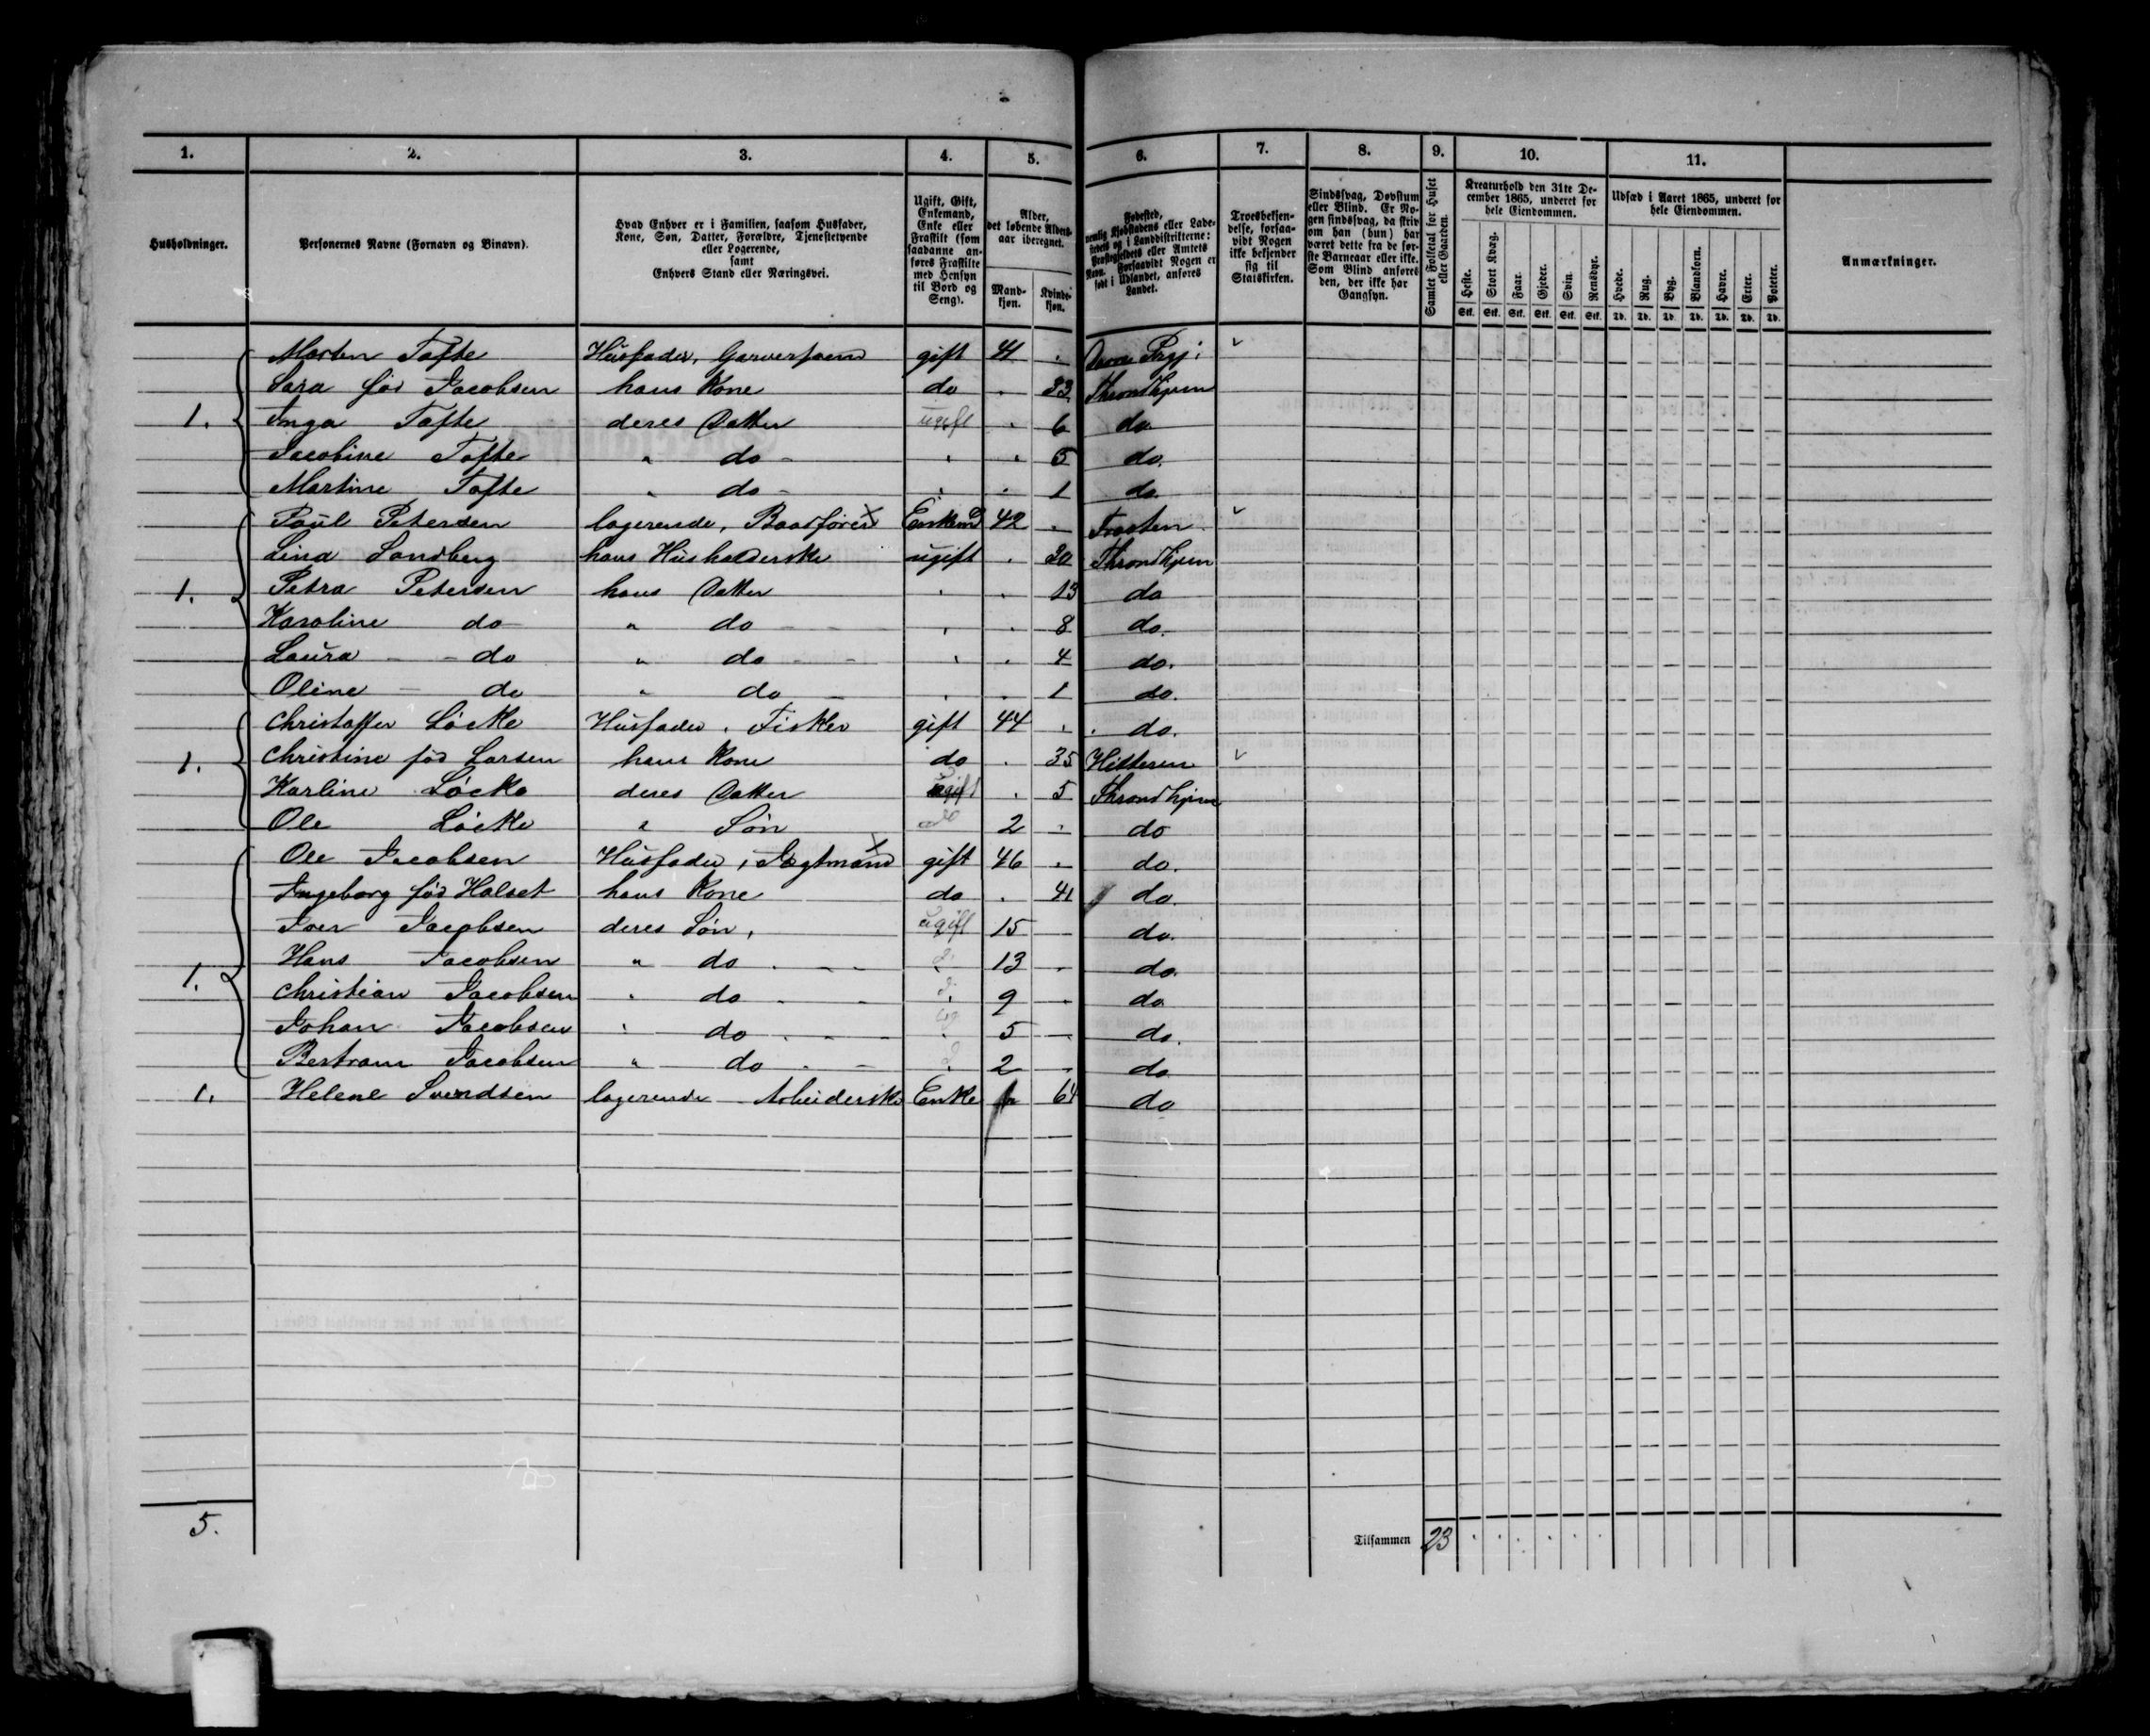 1. 2. 3. 4. 5. 6. 7. 8. 9. 10. 11.
Husholdninger.
Personernes Navne (Fornavn og Binavn).
Hvad Enhver er i Familien, saasom Husfader,
Kone, Søn, Datter, Forældre, Tjenestetyende
eller Logerende,
samt
Enhvers Stand eller Næringsvei.
Ugift, Gift,
Enkemand,
Enke eller
Fraskilt (som
saadanne an-
føres Fraskilte
med Hensyn
til Bord og
Seng).
Alder,
det løbende Alders-
aar iberegnet.
Mand-
kjøn.
Kvinde-
kjøn.
Fødested,
nemlig Kjøbstadens eller Lade-
stedets og i Landdistrikterne:
Præstegjeldets eller Amtets
Navn. Forsaavidt Nogen er
født i Udlandet, anføres
Landet.
Troesbekjen-
delse, forsaa-
vidt Nogen
ikke bekjender
sig til
Statskirken.
Sindssvag, Døvstum
eller Blind. Er No-
gen sindssvag, da skriv
om han (hun) har
været dette fra de før-
ste Barneaar eller ikke.
Som Blind anføres
den, der ikke har
Gangsyn.
Samlet Folketal for Huset
eller Gaarden.
Kreaturhold den 31te De-
cember 1865, underet for
hele Eiendommen.
Heste. Stort Kvæg. Faar. Gjeder. Svin. Rensdyr.
Stk. Stk. Stk. Stk. Stk. Stk.
Udsæd i Aaret 1865, underet for
hele Eiendommen.
Hvede. Rug. Byg. Blandkorn. Havre. Erter. Poteter.
Td. Td. Td. Td. Td. Td. Td.
Anmærkninger.
Morten Tofte Husfader, Garversvend gift 41 Prgj:
Sara fød Jacobsen hans Kone do 33 Throndhjem
1. Inga Tofte deres Datter ugift 6 do
Jacobine Tofte " do 5 do.
Martine Tofte " do 1 do.
Paul Petersen logerende, Baadfører Enkemd 42 Frosten
Lina Sandberg hans Husholderske ugift 30 Throndhjem
1. Petra Petersen hans Datter 13 do
Karoline do " do 8 do.
Laura do " do 4 do.
Oline do " do 1 do.
Christoffer Löcke Husfader, Fisker gift 44 do.
1. Christine fød Larsen hans Kone do 35 Hitteren
Karline Löcke deres Datter ugift 5 Throndhjem
Ole Löcke " Søn do 2 do
Ole Jacobsen Husfader, Jægtmand gift 46 do.
Ingeborg fød Halset hans Kone do 41 do.
Iver Jacobsen deres Søn, ugift 15 do.
1. Hans Jacobsen " do 13 do.
Christian Jacobsen " do 9 do
Johan Jacobsen " do 5 do.
Bertram Jacobsen " do 2 do
1. Helene Svendsen logerende Arbeiderske Enke 64 do
5.
Tilsammen 23